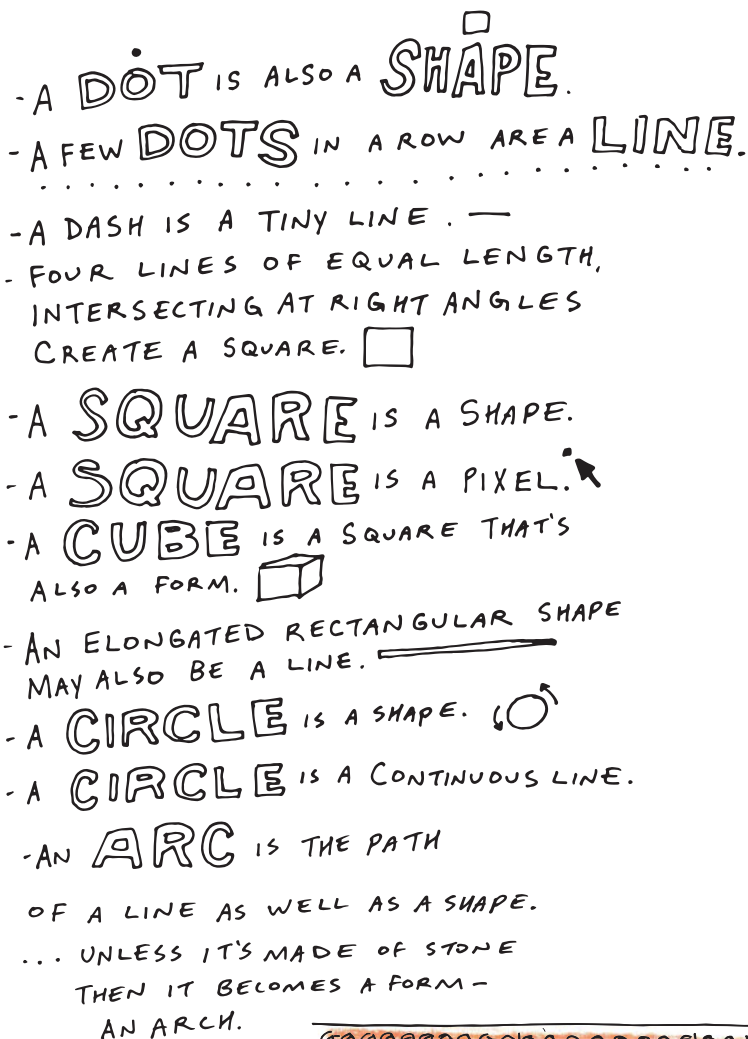 - A DOT IS ALSO A SHAPE.
- A FEW DOTS IN A ROW ARE A LINE.
- A DASH IS A TINY LINE. —
- FOUR LINES OF EQUAL LENGTH,
INTERSECTING AT RIGHT ANGLES
CREATE A SQUARE.
- A SQUARE IS A SHAPE.
- A SQUARE IS A PIXEL.
- A CUBE IS A SQUARE THAT'S
ALSO A FORM.
- AN ELONGATED RECTANGULAR SHAPE
MAY ALSO BE A LINE.
- A CIRCLE IS A SHAPE.
- A CIRCLE IS A CONTINUOUS LINE.
- AN ARC IS THE PATH
OF A LINE AS WELL AS A SHAPE.
... UNLESS IT'S MADE OF STONE
THEN IT BECOMES A FORM -
AN ARCH.